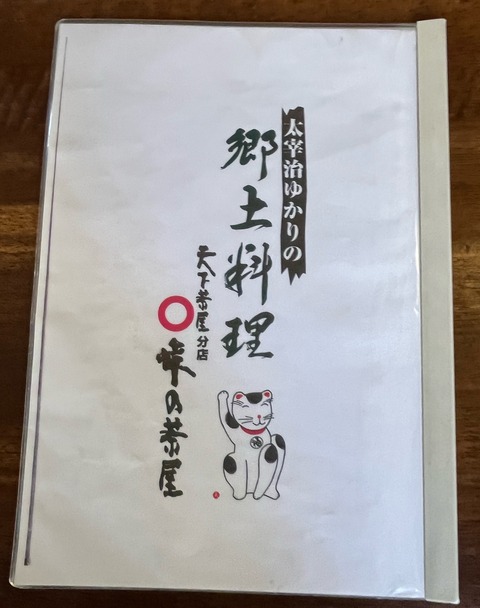 太宰治ゆかりの
郷土料理
天下茶屋分店
峠の茶屋